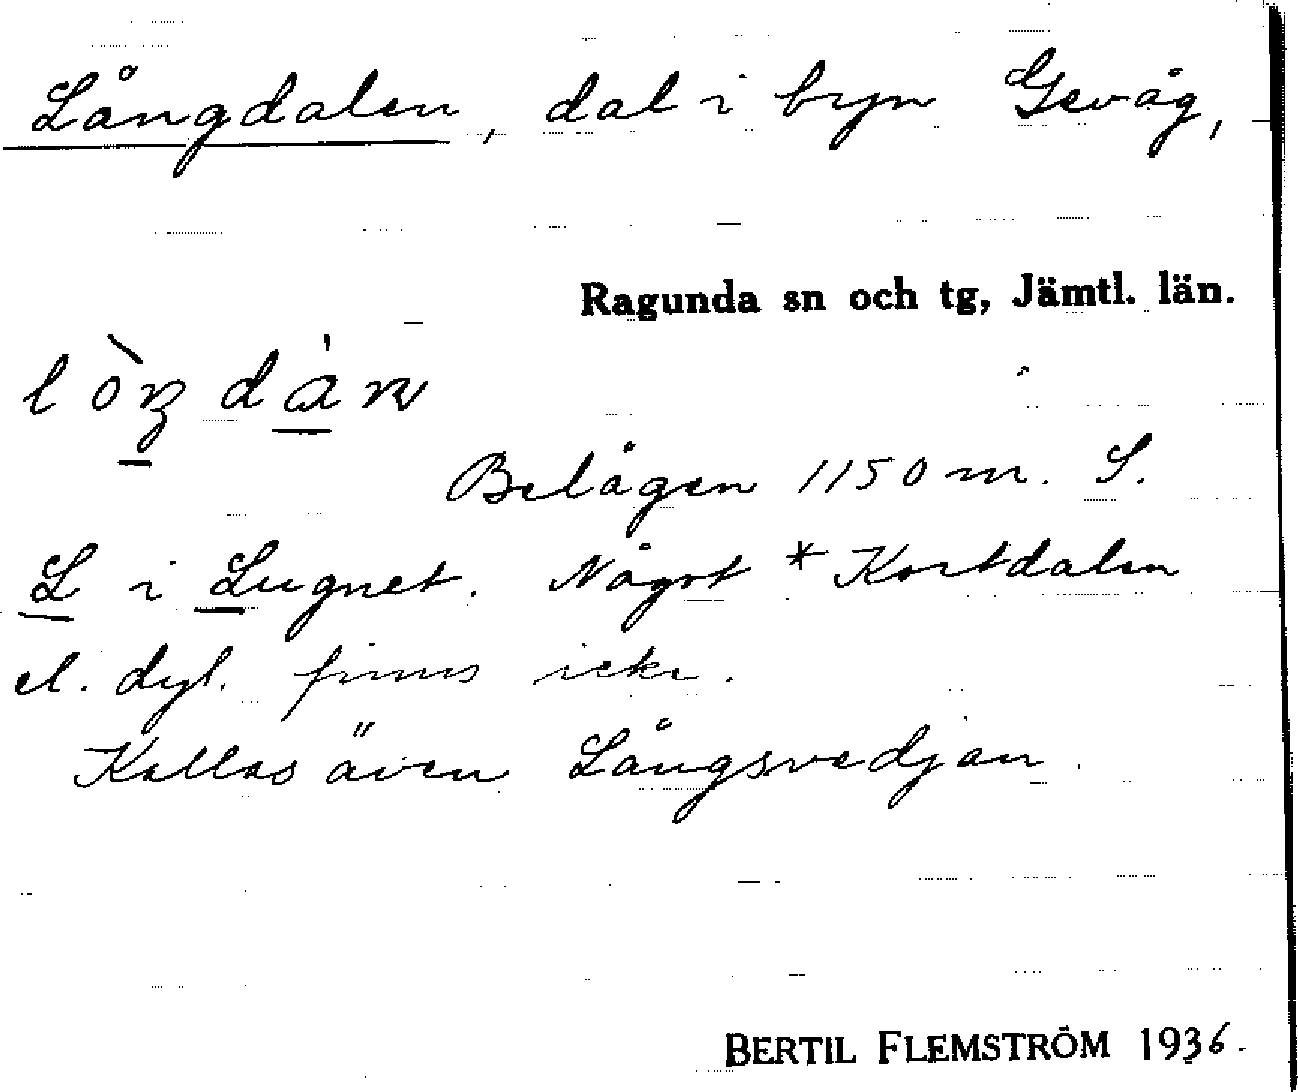 Långdalen, dal i byn Gevåg,
Ragunda sn och tg, Jämtl. län.
Belägen 1150 m. S.
L i Lugnet. Något *Kortdalen
el. dyl. finns icke.
Kallas även Långsvedjan.
BERTIL FLEMSTRÖM 1936.